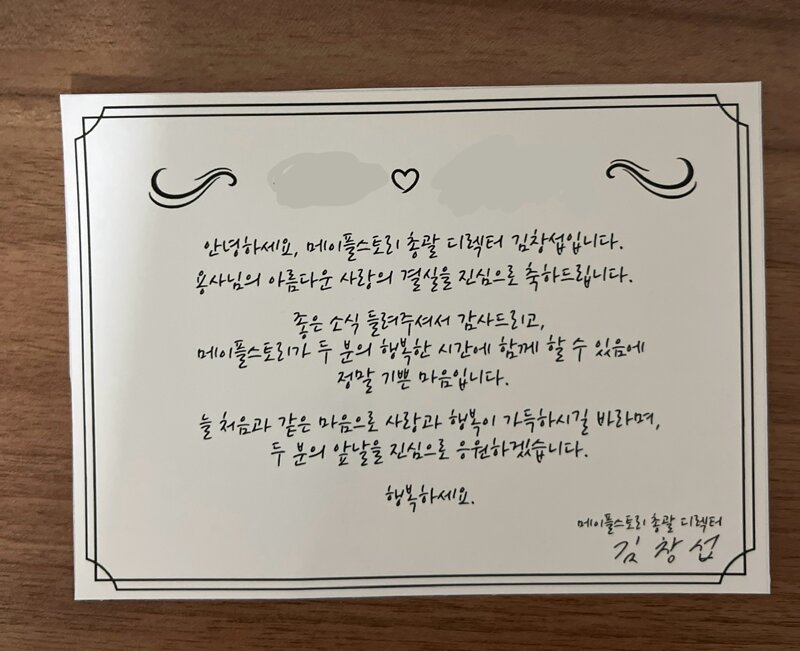 안녕하세요, 메이플스토리 총괄 디렉터 김창섭입니다.
용사님의 아름다운 사랑의 결실을 진심으로 축하드립니다.
좋은 소식 들려주셔서 감사드리고,
메이플스토리가 두 분의 행복한 시간에 함께 할 수 있음에
정말 기쁜 마음입니다.
늘 처음과 같은 마음으로 사랑과 행복이 가득하시길 바라며,
두 분의 앞날을 진심으로 응원하겠습니다.
행복하세요.
메이플스토리 총괄 디렉터
김창섭